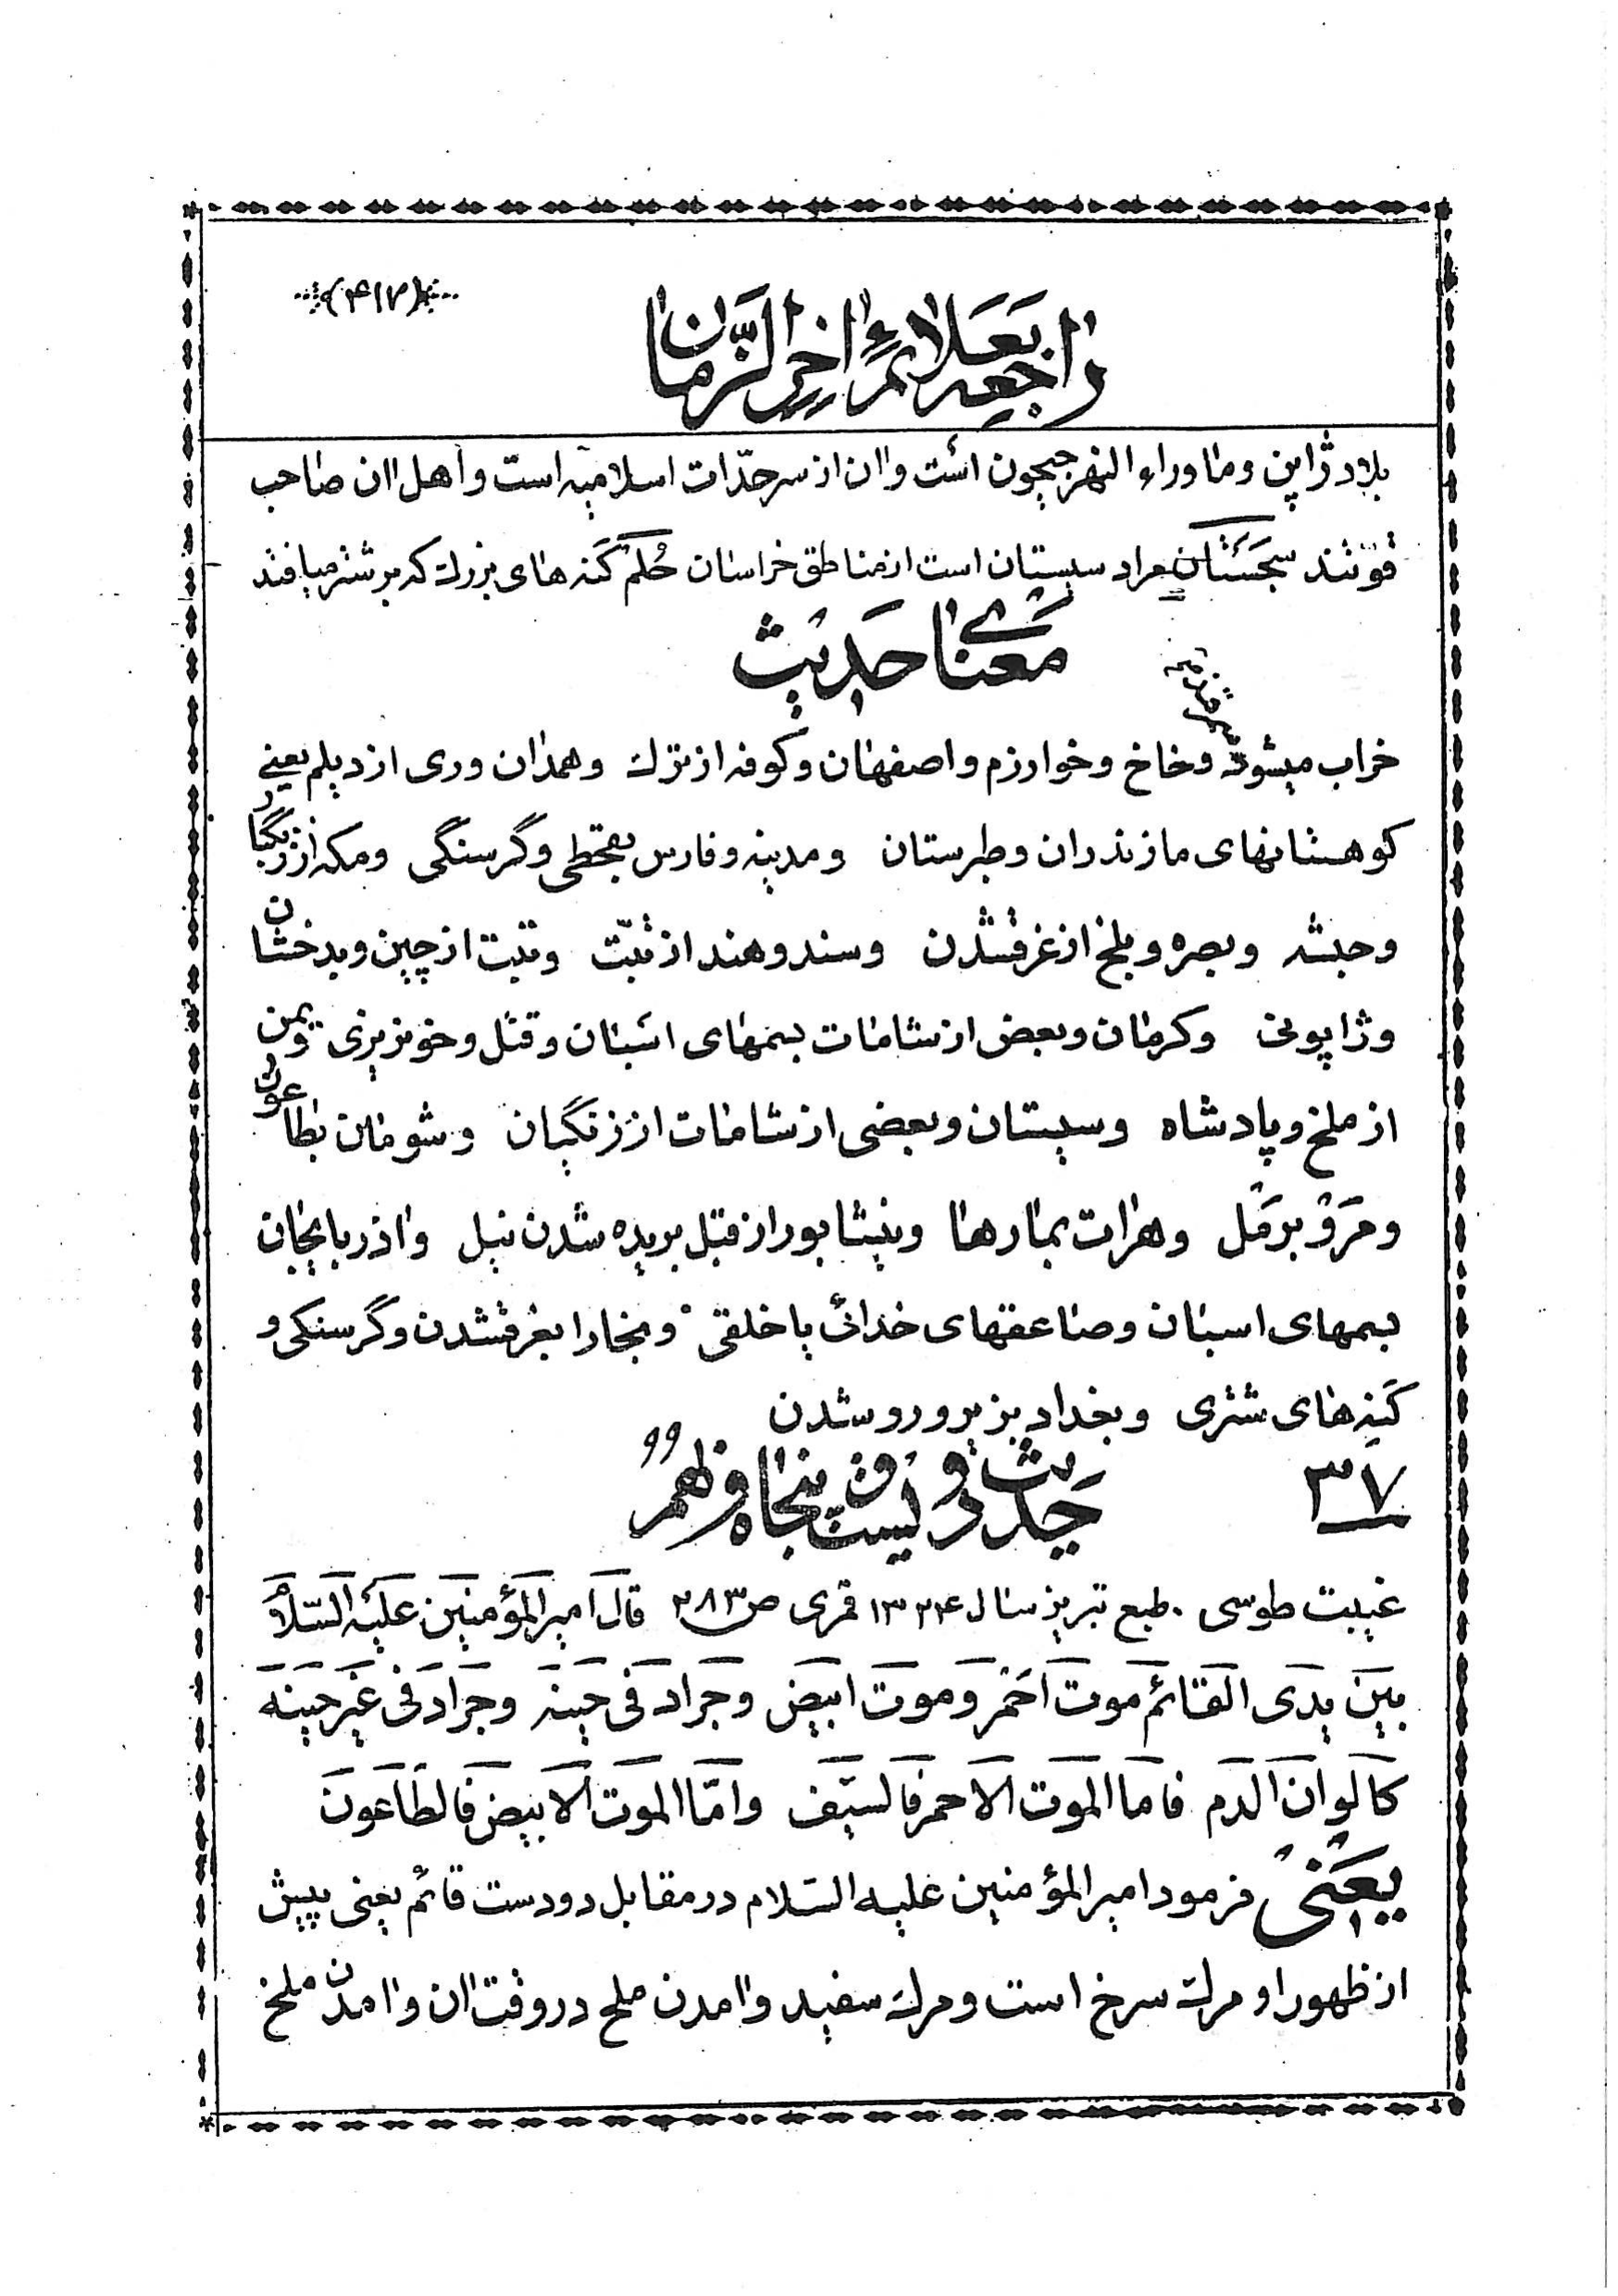 (۴۱۷)
راجعه بعلائم اخر الزمان
بلاد ژاپن و ماوراء النهر جیحون است و ان از سرحدّات اسلامیه است و اهل ان صاحب
قوتند سجستان مراد سیستان است از مناطق خراسان حُلم کنه های بزرك که بر شتر میافتد
معنای حدیث
خراب میشود سمرقند و خاخ و خوارزم و اصفهان و کوفه از ترك و همدان و ری از دیلم یعنی
کوهستانهای مازندران و طبرستان و مدینه و فارس بقحطی و گرسنگی و مکه از زنگیان
و حبشه و بصره و بلخ از غرقشدن و سند و هند از تبّت و تبت از چین و بدخشان
و ژاپونی و کرمان و بعض از شامات بسمهای اسبان و قتل و خونریزی و یمن
از ملخ و پادشاه و سیستان و بعضی از شامات از زنگیان و شومان بطاعون
و مَرو برَمَل و هرات بمارها و نیشابور از قبل بریده شدن نیل و اذربایجان
بسمهای اسبان و صاعقهای خدائی یا خلقی و بخارا بغرقشدن و گرسنکی و
کنه های شتری و بغداد بزیر و رو شدن
۳۷ حدیث دویست و پنجاه و نهم
غیبت طوسی . طبع تبریز سنال ۱۳۲۴ قمری ص ۲۸۳ قال امیر المؤمنین علیه السّلام
بین یدی القائم موت احمر و موت ابیض و جراد فی حینه و جراد فی غیر حینه
کالوان الدم فاما الموت الاحمر فالسیف و امّا الموت الابیض فالطاعون
یعنی فرمود امیر المؤمنین علیه السّلام در مقابل دو دست قائم یعنی پیش
از ظهور او مرك سرخ است و مرك سفید و امدن ملخ در وقت ان و امدن ملخ